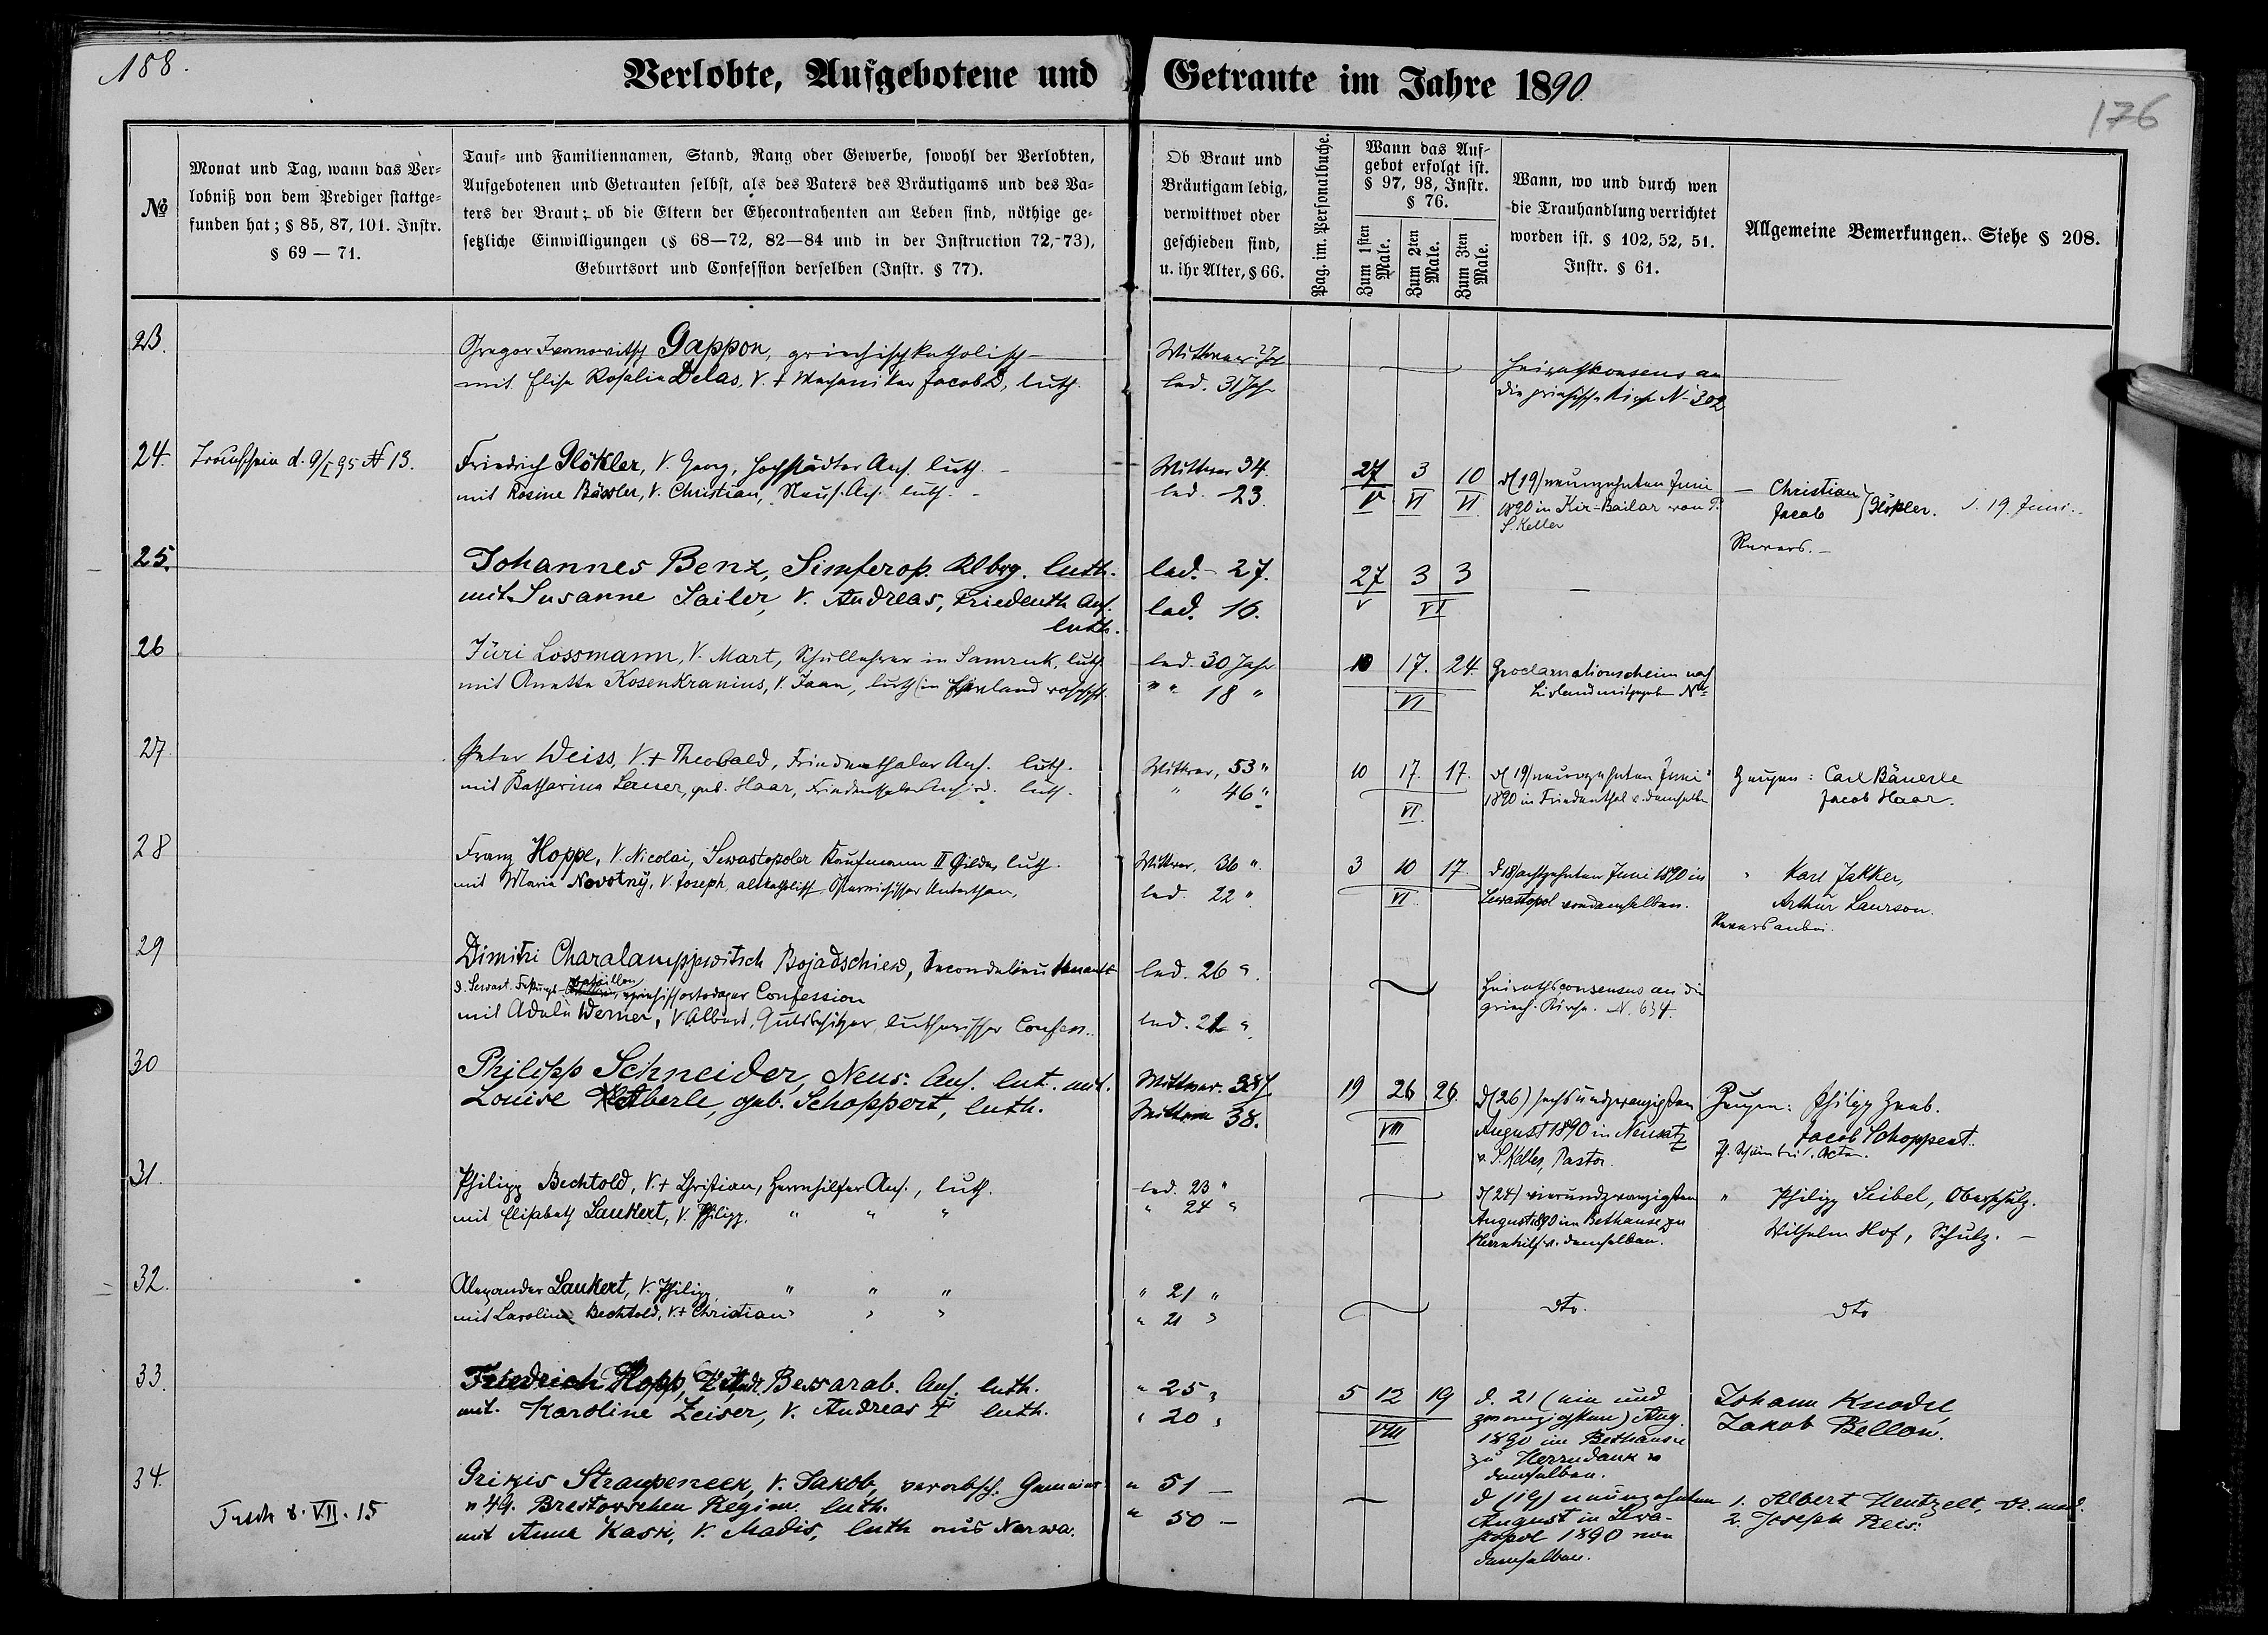 188.
Verlobte, Aufgebotene und Getraute im Jahre 1890.
176
№
Monat und Tag, wann das Ver-
lobniß von dem Prediger stattge-
funden hat; § 85, 87, 101. Instr.
§ 69 — 71.
Tauf- und Familiennamen, Stand, Rang oder Gewerbe, sowohl der Verlobten,
Aufgebotenen und Getrauten selbst, als des Vaters des Bräutigams und des Va-
ters der Braut; ob die Eltern der Ehecontrahenten am Leben sind, nöthige ge-
setzliche Einwilligungen (§ 68—72, 82—84 und in der Instruction 72,-73),
Geburtsort und Confession derselben (Instr. § 77).
Ob Braut und
Bräutigam ledig,
verwittwet oder
geschieden sind,
u. ihr Alter, § 66.
Pag. im. Personalbuche.
Wann das Auf-
gebot erfolgt ist.
§ 97, 98, Instr.
§ 76.
Zum 1sten
Male.
Zum 2ten
Male.
Zum 3ten
Male.
Wann, wo und durch wen
die Trauhandlung verrichtet
worden ist. § 102, 52, 51.
Instr. § 61.
Allgemeine Bemerkungen. Siehe § 208.
23.
Gregor Iwanowitsch Gappon, griechischkatholisch —
mit Elise Rosalie Delas, V. + Mechaniker Jacob D, luth.
Wittwer ? Jhr
led. 31 Jahr
Heirathkonsens an
die griechische Kirche N- 302
24.
Trauschein d. 9/I 95 № 13.
Friedrich Glökler, V. Georg, Hochstädter Ans. luth. —
mit Rosine Bässler, V. Christian, Neus. Ans. luth. —
Wittwer 34.
led. 23.
27 3 10
V VI VI
d (19) neunzehnten Juni
1890 in Kir-Bailar von P.
S. Keller
— Christian
Jacob } Glökler. d. 19. Juni.
Revers. —
25.
Johannes Benz, Simferop. Klbrg. luth.
mit Susanne Sailer, V. Andreas, Friedenth. Ans.
luth.
led. — 27.
led. 16.
27 3 3
V VI
—
26
Jüri Lossmann, V. Mart, Schullehrer in Samruk, luth
mit Anette Kosenkranius, V. Jaan, luth (in
led. 30 Jahr
" " 18 "
10 17. 24.
VI
Proclamationschein nach
Livland mitgegeben №
27
Peter Weiss, V. + Theobald, Friedenthaler Ans. luth.
mit Katharina Lerner, geb. Haar, Friedenthaler Ans. luth.
Wittwer, 53 "
" 46 "
10 17. 17.
VI.
d (19) neunzehnten Juni
1890 in Friedenthal v. demselben
Zeugen: Carl Bäuerle
Jacob Haar.
28
Franz Hoppe, V. Nicolai, Sewastopoler Kaufmann II Gilde, luth.
mit Maria Novotný, V. Joseph, altkatholisch Österreichischer Unterthan,
Wittwer, 36 "
led. 22 "
3 10 17.
VI
d 18) achtzehnten Juni 1890 in
Sewastopol von demselben.
" Karl Jakker,
Arthur Laurson.
Revers anbei.
29
Dimitri Charalampjewitsch Bojadschiew, Secondelieutenant
d. Sewast. Festungs- Bataillon, griechisch ortodoxer Confession
mit Adele Werner, V. Albert, Gutsbesitzer, lutherischer Confess..
led. 26 "
led. 21 "
Heirathsconsensus an die
griech. Kirche. N. 634.
30
Philipp Schneider, Neus. Ans. lut. mit.
Louise Aberle, geb. Schoppert, luth.
Wittwer. 38
Wittwe 38.
19 26 26.
VIII
d (26) sechsundzwanzigsten
August 1890 in Neusatz
v. S. Keller, Pastor.
Zeugen: Philipp
Jacob Schoppert.
31.
Philipp Bechtold, V. + Christian, Herrnhilfer Ans., luth.
mit Elisabeth Laukert, V. Philipp, " " "
led. 23 "
" 24 "
d (24) vierundzwanzigsten
August 1890 im Bethause zu
Herrnhilf v. demselben.
" Philipp Seibel, Oberschulz.
Wilhelm Hof, Schulz. —
32.
Alexander Laukert, V. Philipp, " " "
mit Caroline Bechtold, V. + Christian " " "
" 21 "
" 21 "
dto.
dto
33.
Friedrich Hopp, V. Bessarab. Ans. luth.
mit. Karoline Zeiser, V. Andreas I luth.
" 25 "
" 20 "
5 12 19
VIII
d. 21 (ein und
zwanzigsten) Aug.
1890 im Bethause
zu Herrndank v
demselben.
Johann Knodel,
Jakob Bellon.
34.
Tusch 8. VII. 15
Grizis Straupeneek, V. Jakob, verabsch. Gemeiner
v 49. Brestowschen Regim. luth.
mit Anna Kask, V. Madis, luth aus Narwa.
" 51 —
" 50 —
—
d (19) neunzehnten
August in Sewa-
stopol 1890 von
demselben.
1. Albert Hentzelt, Dr. med.
2. Joseph Reis.